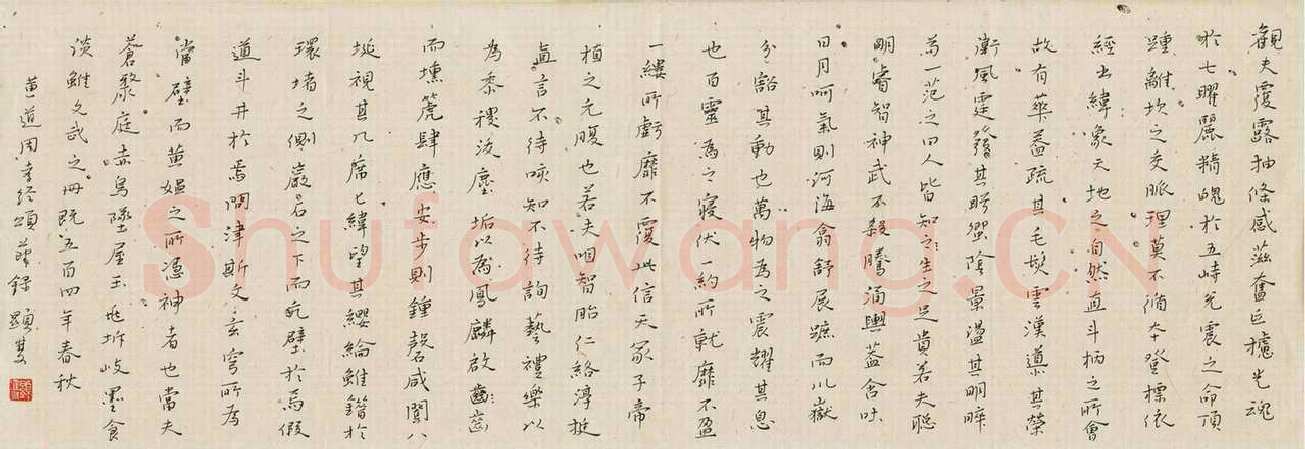 觀夫覆露抽條感滋奮區攄光魂
於七曜麗精魄於五峙先震之命頂
踵離坎之交脈理莫不循本登標依
經出緯象天地之自然直斗柄之所會
故有華蓋疏其毛髮雲漢導其榮
衛風霆發其睜䖝陰暈溫其明眸
為一范之曰人皆知之生之足貴若夫聡
明睿智神武不殺騰涌輿蓋含吐
日月呵氣則河海翕舒展蹠而川嶽
分豁其動也萬物為之震耀其息
也百靈為之寢伏一約所就靡不盈
一縷所虧靡不覆此信天冢子帝
植之元腹也若夫咽智胎仁絡淳挺
直言不待咳知不待詢藝禮樂以
為黍稷浚塵垢以為鳳麟啟齒
而壎箎肆應安步則鍾磬咸聞八
埏視其几席七緯望其纓綸雖錯於
環堵之側巖石之下而瓦壁於焉假
道斗井於焉問津斯文玄穹所為
當壁而黄媼之所憑神者也當夫
蒼麟庭赤烏墜屋玉地坼岐墨食
淡雖文武之冊既五百四年春秋
黄道周孝經頌 節錄 顯雙
Shufawang.CN